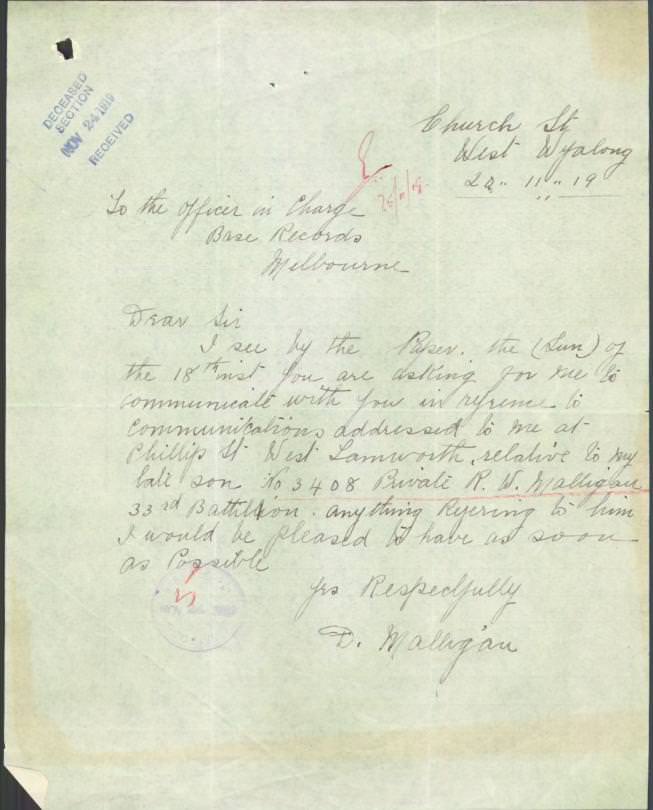 DECEASED
SECTION
NOV 24 1919
RECEIVED
Church St
West Wyalong
11 19
To the Officer in Charge
Base Records
Melbourne
Dear Sir
I see by the Paper. the (Sun) of
the 18th inst you are asking for me to
communicate with you in refrence to
communications addressed to me at
Phillip St West Tamworth, relative to my
late son No 3408 Private R. W. Malligan
33rd Battillion. anything Refering to him
I would be pleased to have as soon
as Possible
Yrs Respectfully
D. Malligan